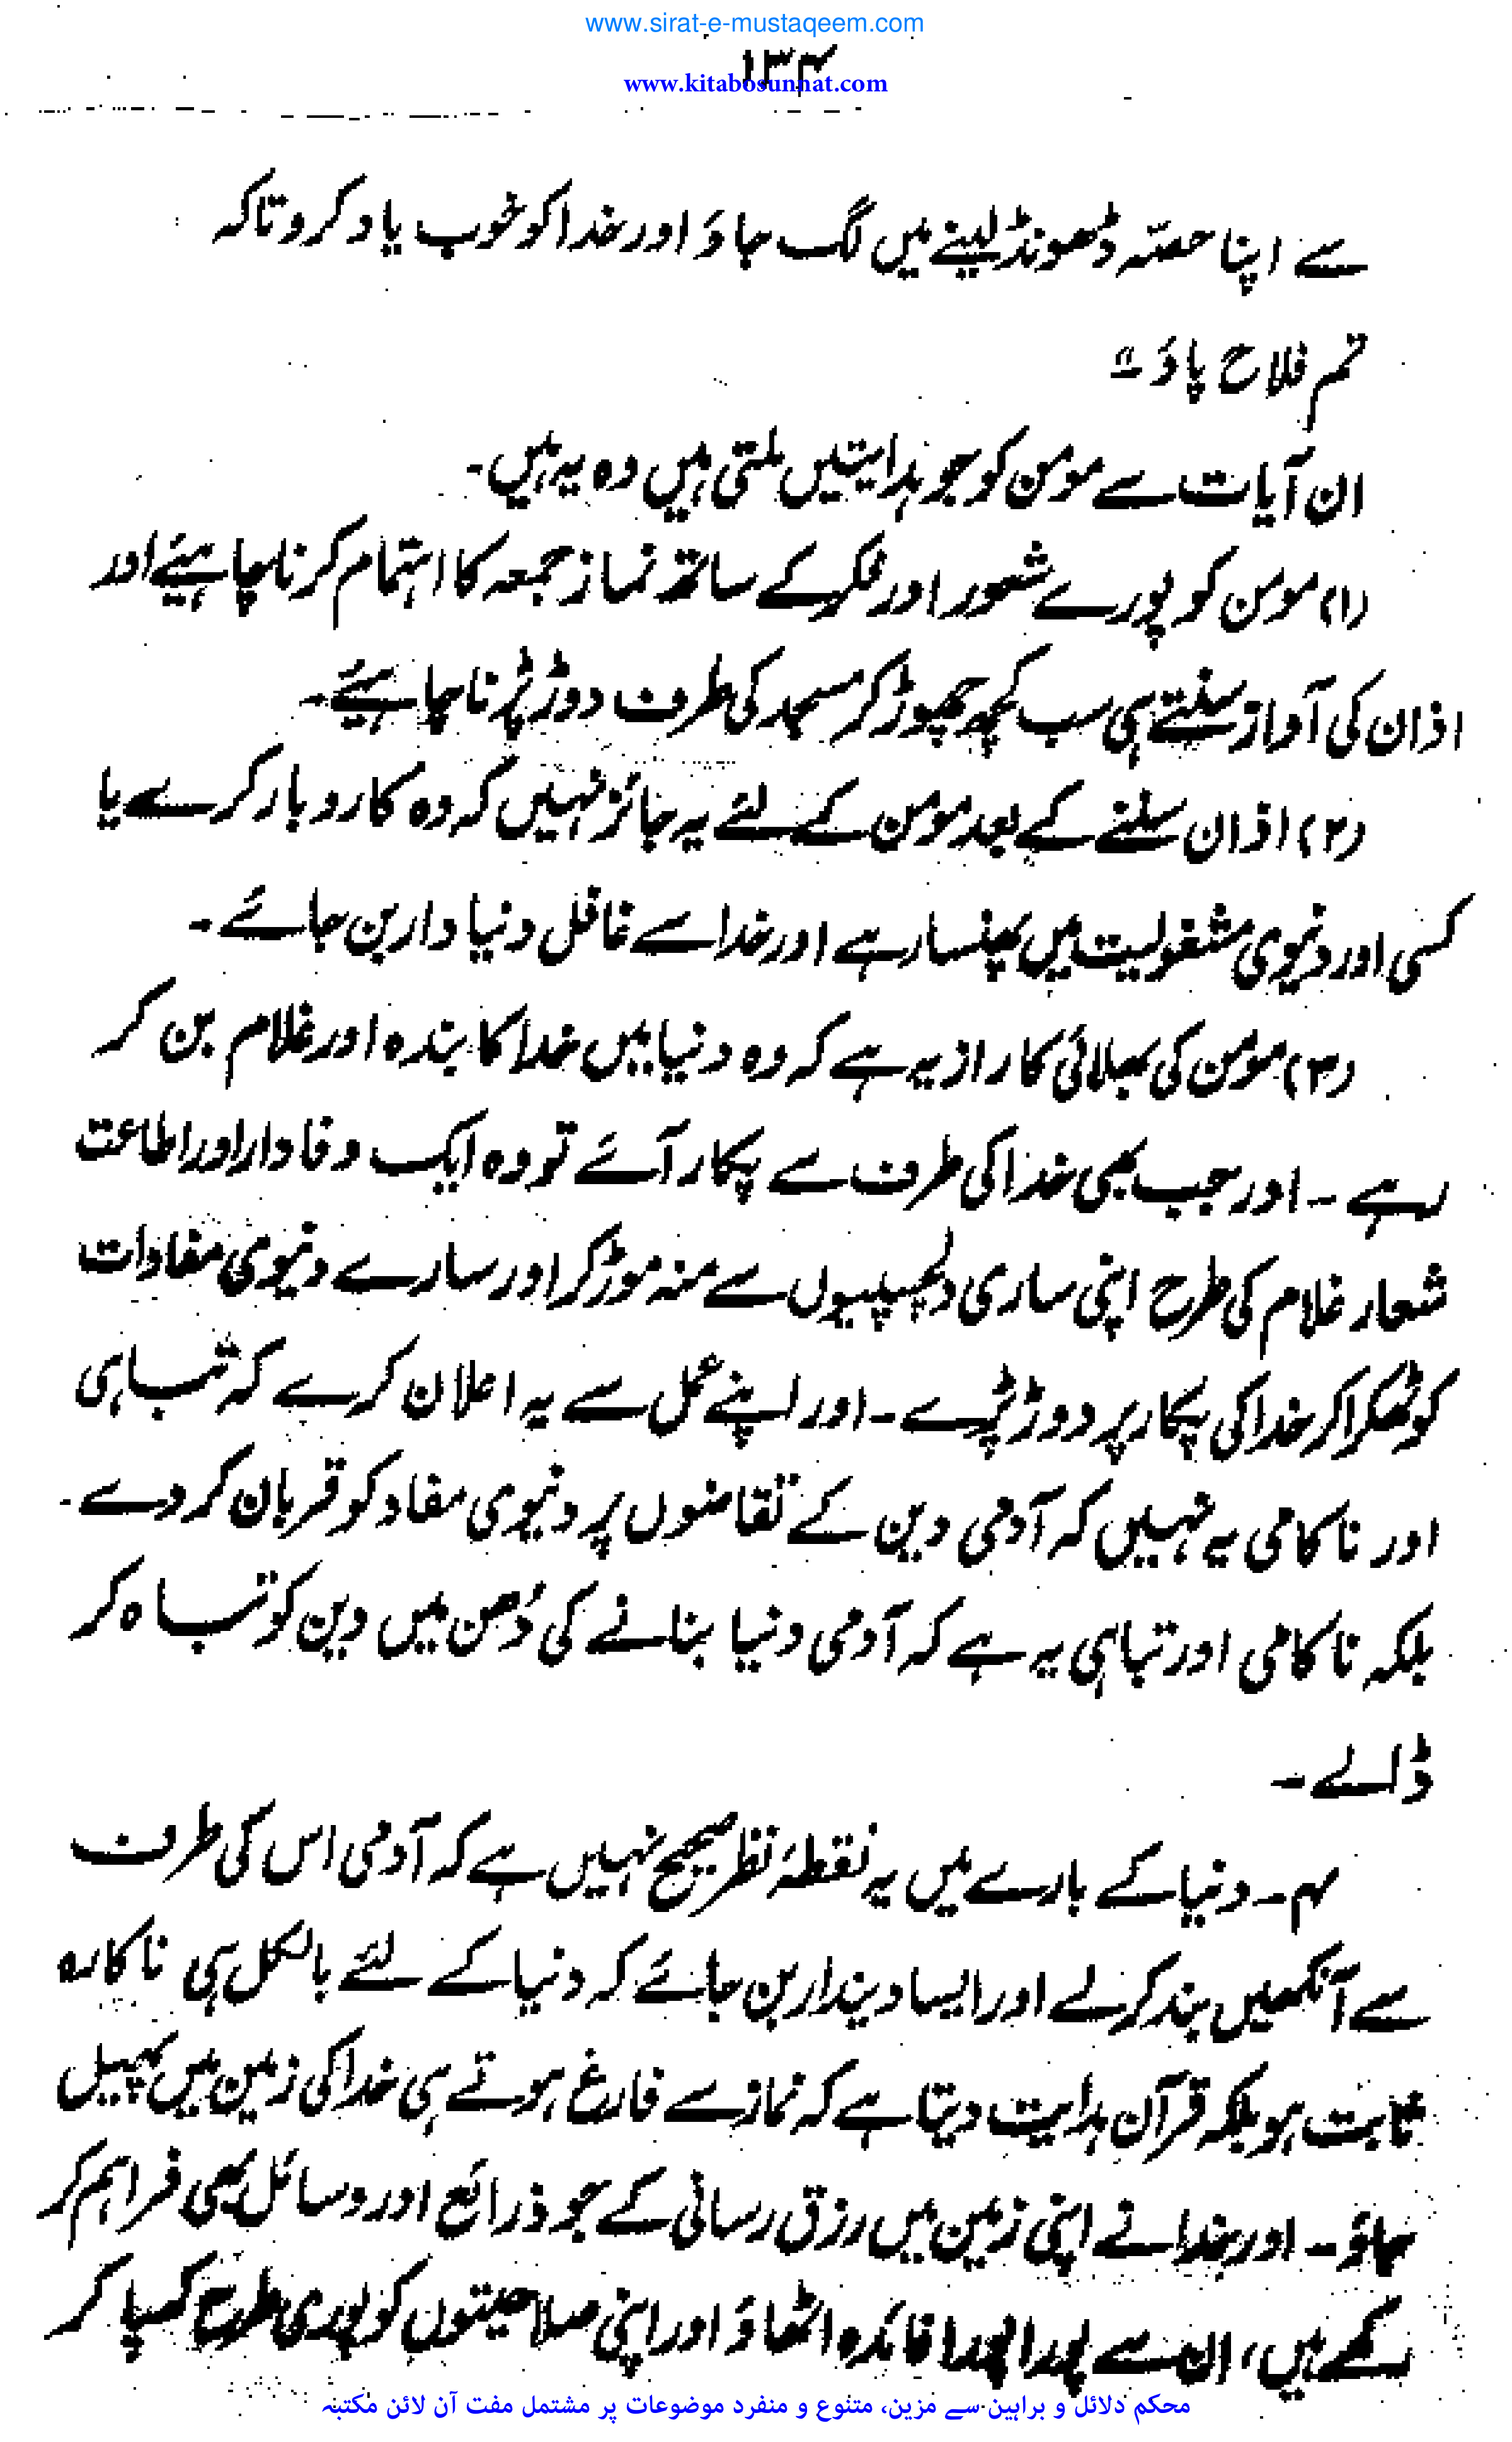 www.sirat-e-mustaqeem.com
۱۳۴
www.kitabosunnat.com
سے اپنا حصّہ ڈھونڈ لینے میں لگ جاؤ اور خدا کو خوب یاد کرو تاکہ
تم فلاح پاؤ ۔"
ان آیات سے مومن کو جو ہدایتیں ملتی ہیں وہ یہ ہیں۔
(۱) مومن کو پورے شعور اور فکر کے ساتھ نماز جمعہ کا اہتمام کرنا چاہیئے اور
اذان کی آواز سنتے ہی سب کچھ چھوڑ کر مسجد کی طرف دوڑ پڑنا چاہیئے۔
(۲) اذان سننے کے بعد مومن کے لئے یہ جائز نہیں کہ وہ کاروبار کرے یا
کسی اور دنیوی مشغولیت میں پھنسا رہے اور خدا سے غافل دنیا دار بن جائے۔
(۳) مومن کی بھلائی کا راز یہ ہے کہ وہ دنیا میں خدا کا بندہ اور غلام بن کر
رہے ۔ اور جب بھی خدا کی طرف سے پکار آئے تو وہ ایک وفادار اور اطاعت
شعار غلام کی طرح اپنی ساری دلچسپیوں سے منہ موڑ کر اور سارے دنیوی مفادات
کو ٹھکرا کر خدا کی پکار پر دوڑ پڑے ۔ اور اپنے عمل سے یہ اعلان کرے کہ تباہی
اور ناکامی یہ نہیں کہ آدمی دین کے تقاضوں پر دنیوی مفاد کو قربان کر دے۔
بلکہ ناکامی اور تباہی یہ ہے کہ آدمی دنیا بنانے کی دُھن میں دین کو تباہ کر
ڈالے ۔
۴ ۔ دنیا کے بارے میں یہ نقطۂ نظر صحیح نہیں ہے کہ آدمی اس کی طرف
سے آنکھیں بند کر لے اور ایسا دیندار بن جائے کہ دنیا کے لئے بالکل ہی ناکارہ
ثابت ہو بلکہ قرآن ہدایت دیتا ہے کہ نماز سے فارغ ہوتے ہی خدا کی زمین میں پھیل
جاؤ ۔ اور خدا نے اپنی زمین میں رزق رسانی کے جو ذرائع اور وسائل بھی فراہم کر
رکھے ہیں، ان سے پورا پورا فائدہ اٹھاؤ اور اپنی صلاحیتوں کو پوری طرح کھپا کر
محکم دلائل و براہین سے مزین، متنوع و منفرد موضوعات پر مشتمل مفت آن لائن مکتبہ